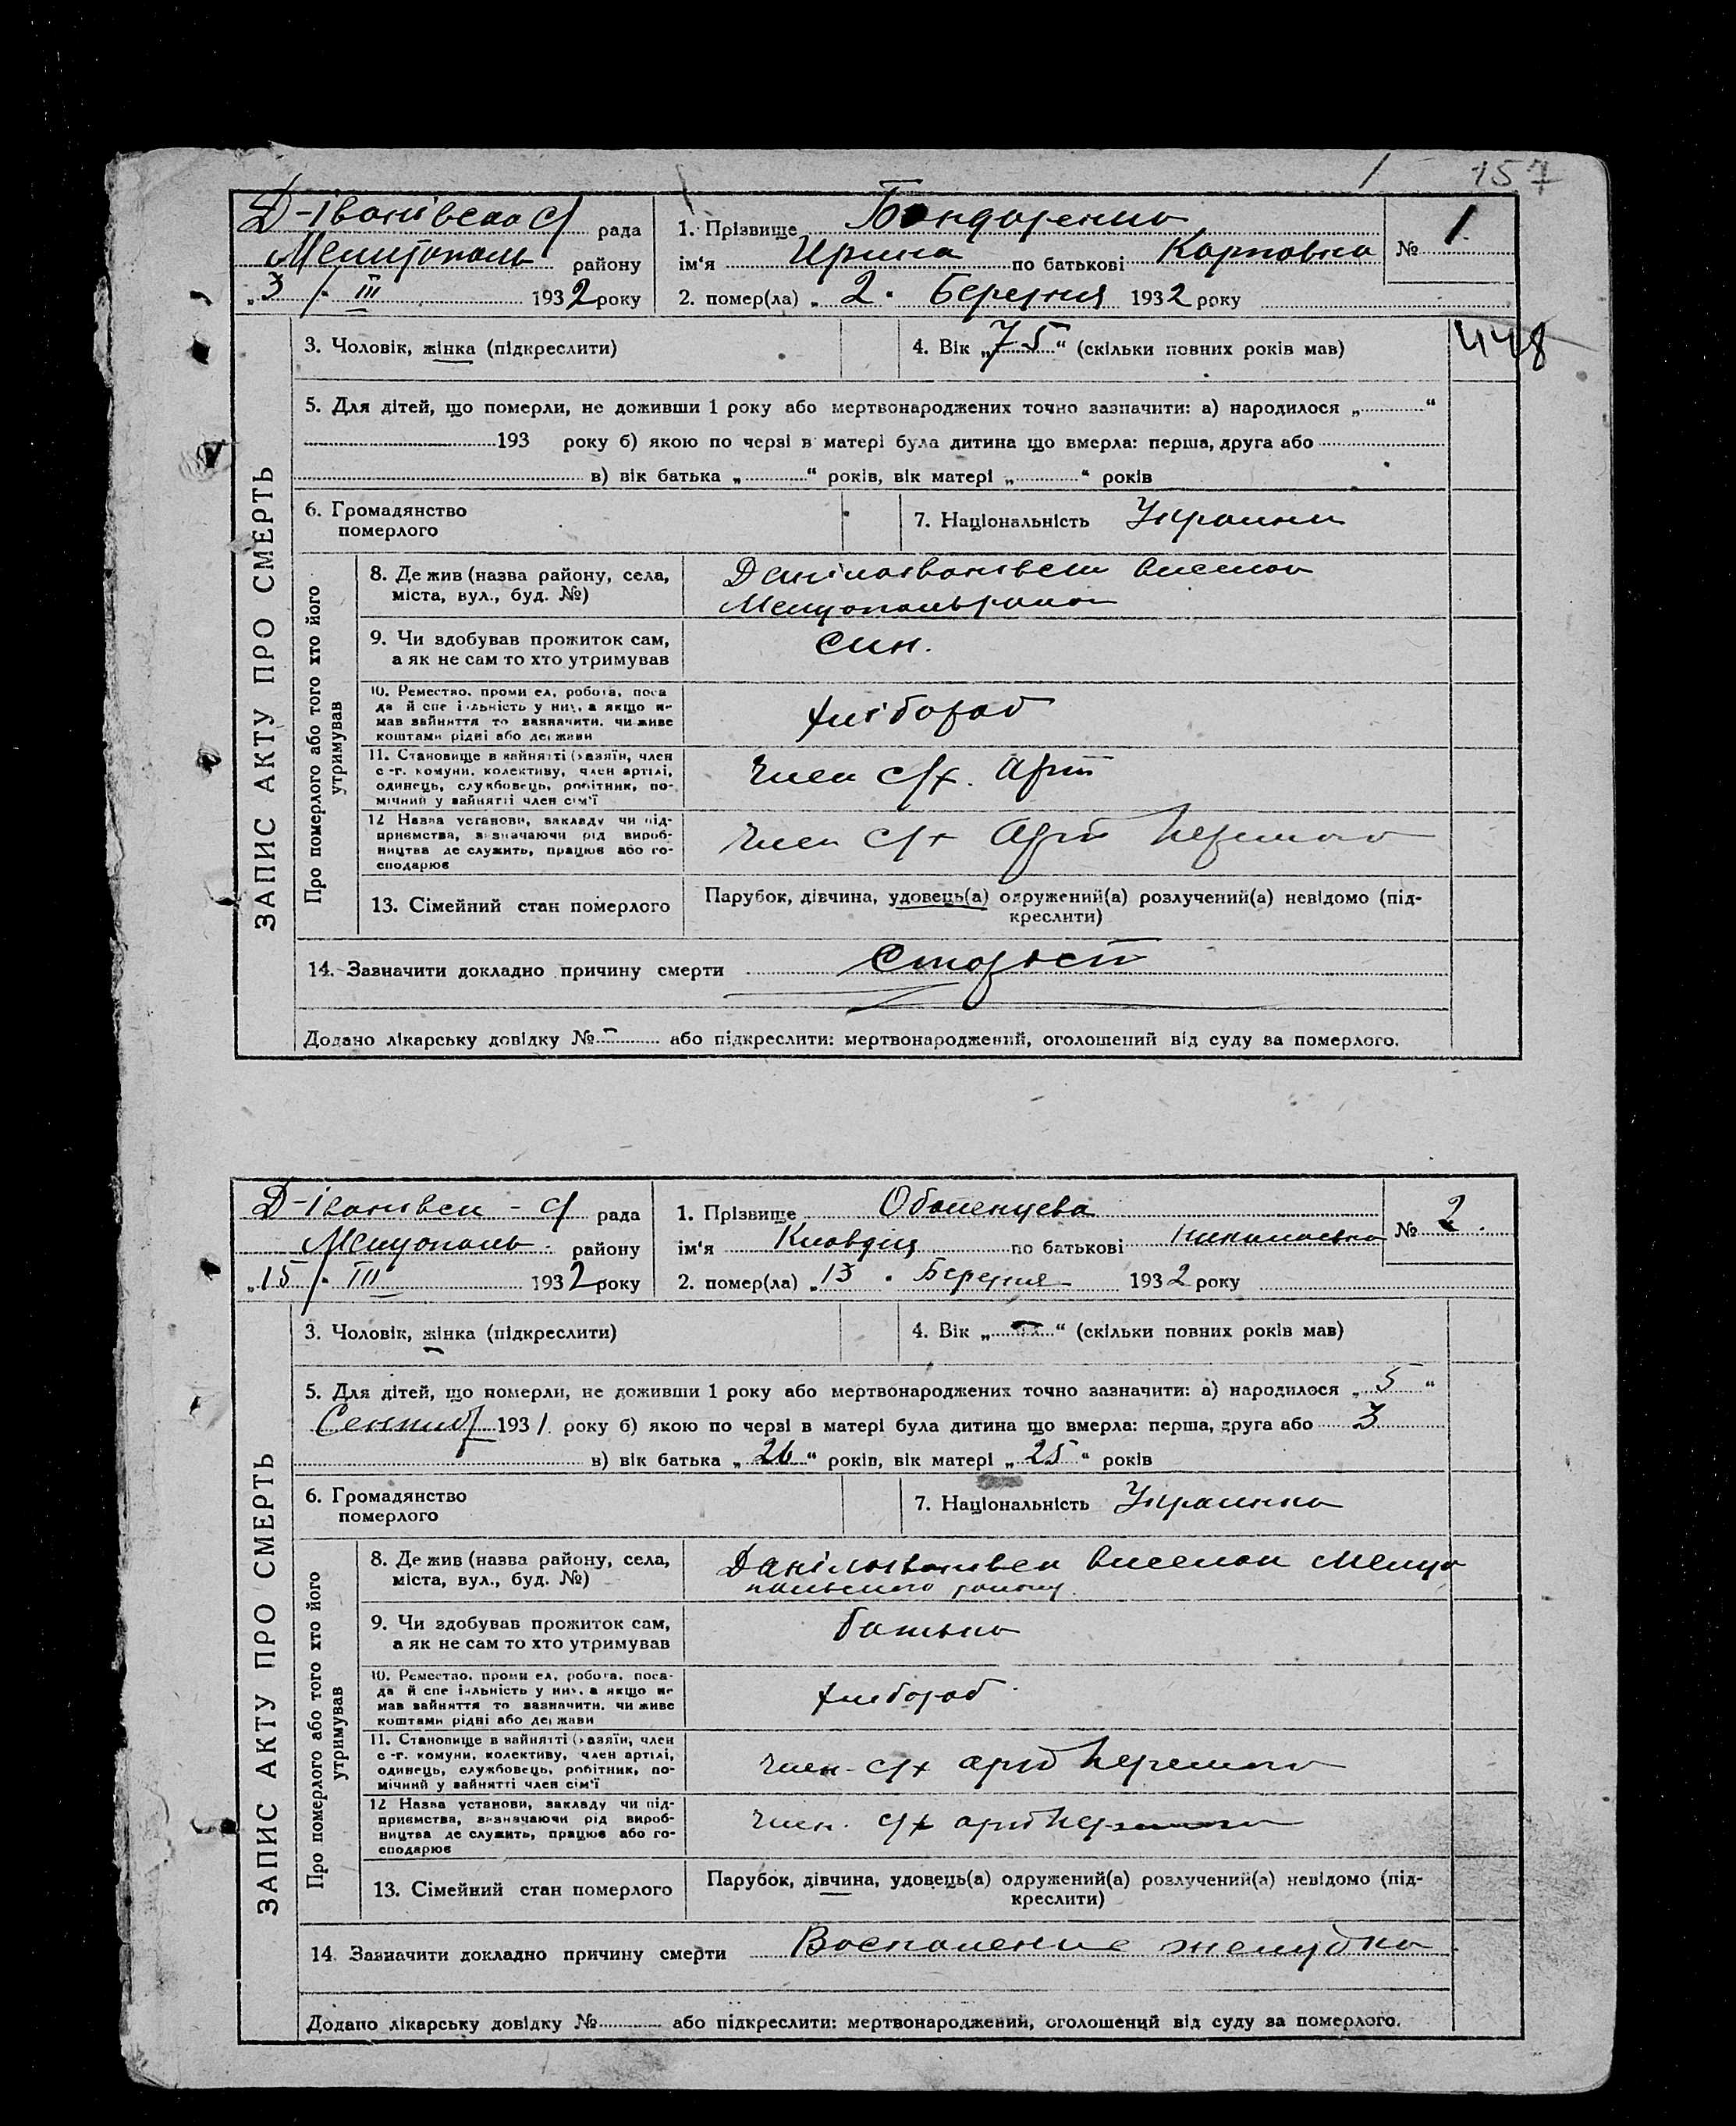 1 157
Д-Іванівсько с/ рада
Мелитополь району
„3/" III 1932 року
1. Прізвище Бондаренко
ім‘я Ирина по батькові Карповна
2. помер(ла) „2" Березня 1932 року
№ 1
3. Чоловік, жінка (підкреслити)
4. Вік „75“ (скільки повних років мав)
448
5. Для дітей, що померли, не доживши 1 року або мертвонароджених точно зазначити: а) народилося „ “
193 року б) якою по черзі в матері була дитина що вмерла: перша, друга або
в) вік батька „ “ років, вік матері „ “ років
6. Громадянство
померлого
7. Національність Украинка
ЗАПИС АКТУ ПРО СМЕРТЬ
Про померлого або того хто його
утримував
8. Де жив (назва району, села,
міста, вул., буд. №)
Данілоіванівськ виселок
9. Чи здобував прожиток сам,
а як не сам то хто утримував
син.
10. Ремество, промисел, робота, поса
да й спеціальність у них, а якщо не
мав зайняття то зазначити, чи живе
коштами рідні або держави
хлібороб
11. Становище в зайнятті (хазяїн, член
с.-г. комуни, колективу, член артілі,
одинець, службовець, робітник, по-
мічний у зайнятті член сім‘ї
член с/х. Арт
12 Назва установи, закладу чи під-
приємства, визначаючи рід вироб-
ництва де служить, працює або го-
сподарює
член с/х Арт Перемога
13. Сімейний стан померлого
Парубок, дівчина, удовець(а) одружений(а) розлучений(а) невідомо (під-
креслити)
14. Зазначити докладно причину смерти Старість
Додано лікарську довідку №- або підкреслити: мертвонароджений, оголошений від суду за померлого.
Д-Іванівськ - с/ рада
Мелитополь району
„15/" III 1932 року
1. Прізвище
ім‘я Клавдія по батькові Николаевна
2. помер(ла) „13" Березня 1932 року
№ 2.
3. Чоловік, жінка (підкреслити)
4. Вік „ “ (скільки повних років мав)
5. Для дітей, що померли, не доживши 1 року або мертвонароджених точно зазначити: а) народилося „5“
Сентяб 1931 року б) якою по черзі в матері була дитина що вмерла: перша, друга або 3
в) вік батька „26“ років, вік матері „25“ років
6. Громадянство
померлого
7. Національність Украинка
ЗАПИС АКТУ ПРО СМЕРТЬ
Про померлого або того хто його
утримував
8. Де жив (назва району, села,
міста, вул., буд. №)
Данільіванівськ виселок Мелито
польского району
9. Чи здобував прожиток сам,
а як не сам то хто утримував
батько
10. Ремество, промисел, робота, поса-
да й спеціальність у них, а якщо не
мав зайняття то зазначити, чи живе
коштами рідні або держави
хлибороб
11. Становище в зайнятті (хазяїн, член
с.-г. комуни, колективу, член артілі,
одинець, службовець, робітник, по-
мічний у зайнятті член сім‘ї
член с/х арт Перемога
12 Назва установи, закладу чи під-
приємства, визначаючи рід вироб-
ництва де служить, працює або го-
сподарює
член. с/х арт Перемога
13. Сімейний стан померлого
Парубок, дівчина, удовець(а) одружений(а) розлучений(а) невідомо (під-
креслити)
14. Зазначити докладно причину смерти Воспаление желудка
Додано лікарську довідку № або підкреслити: мертвонароджений, оголошений від суду за померлого.